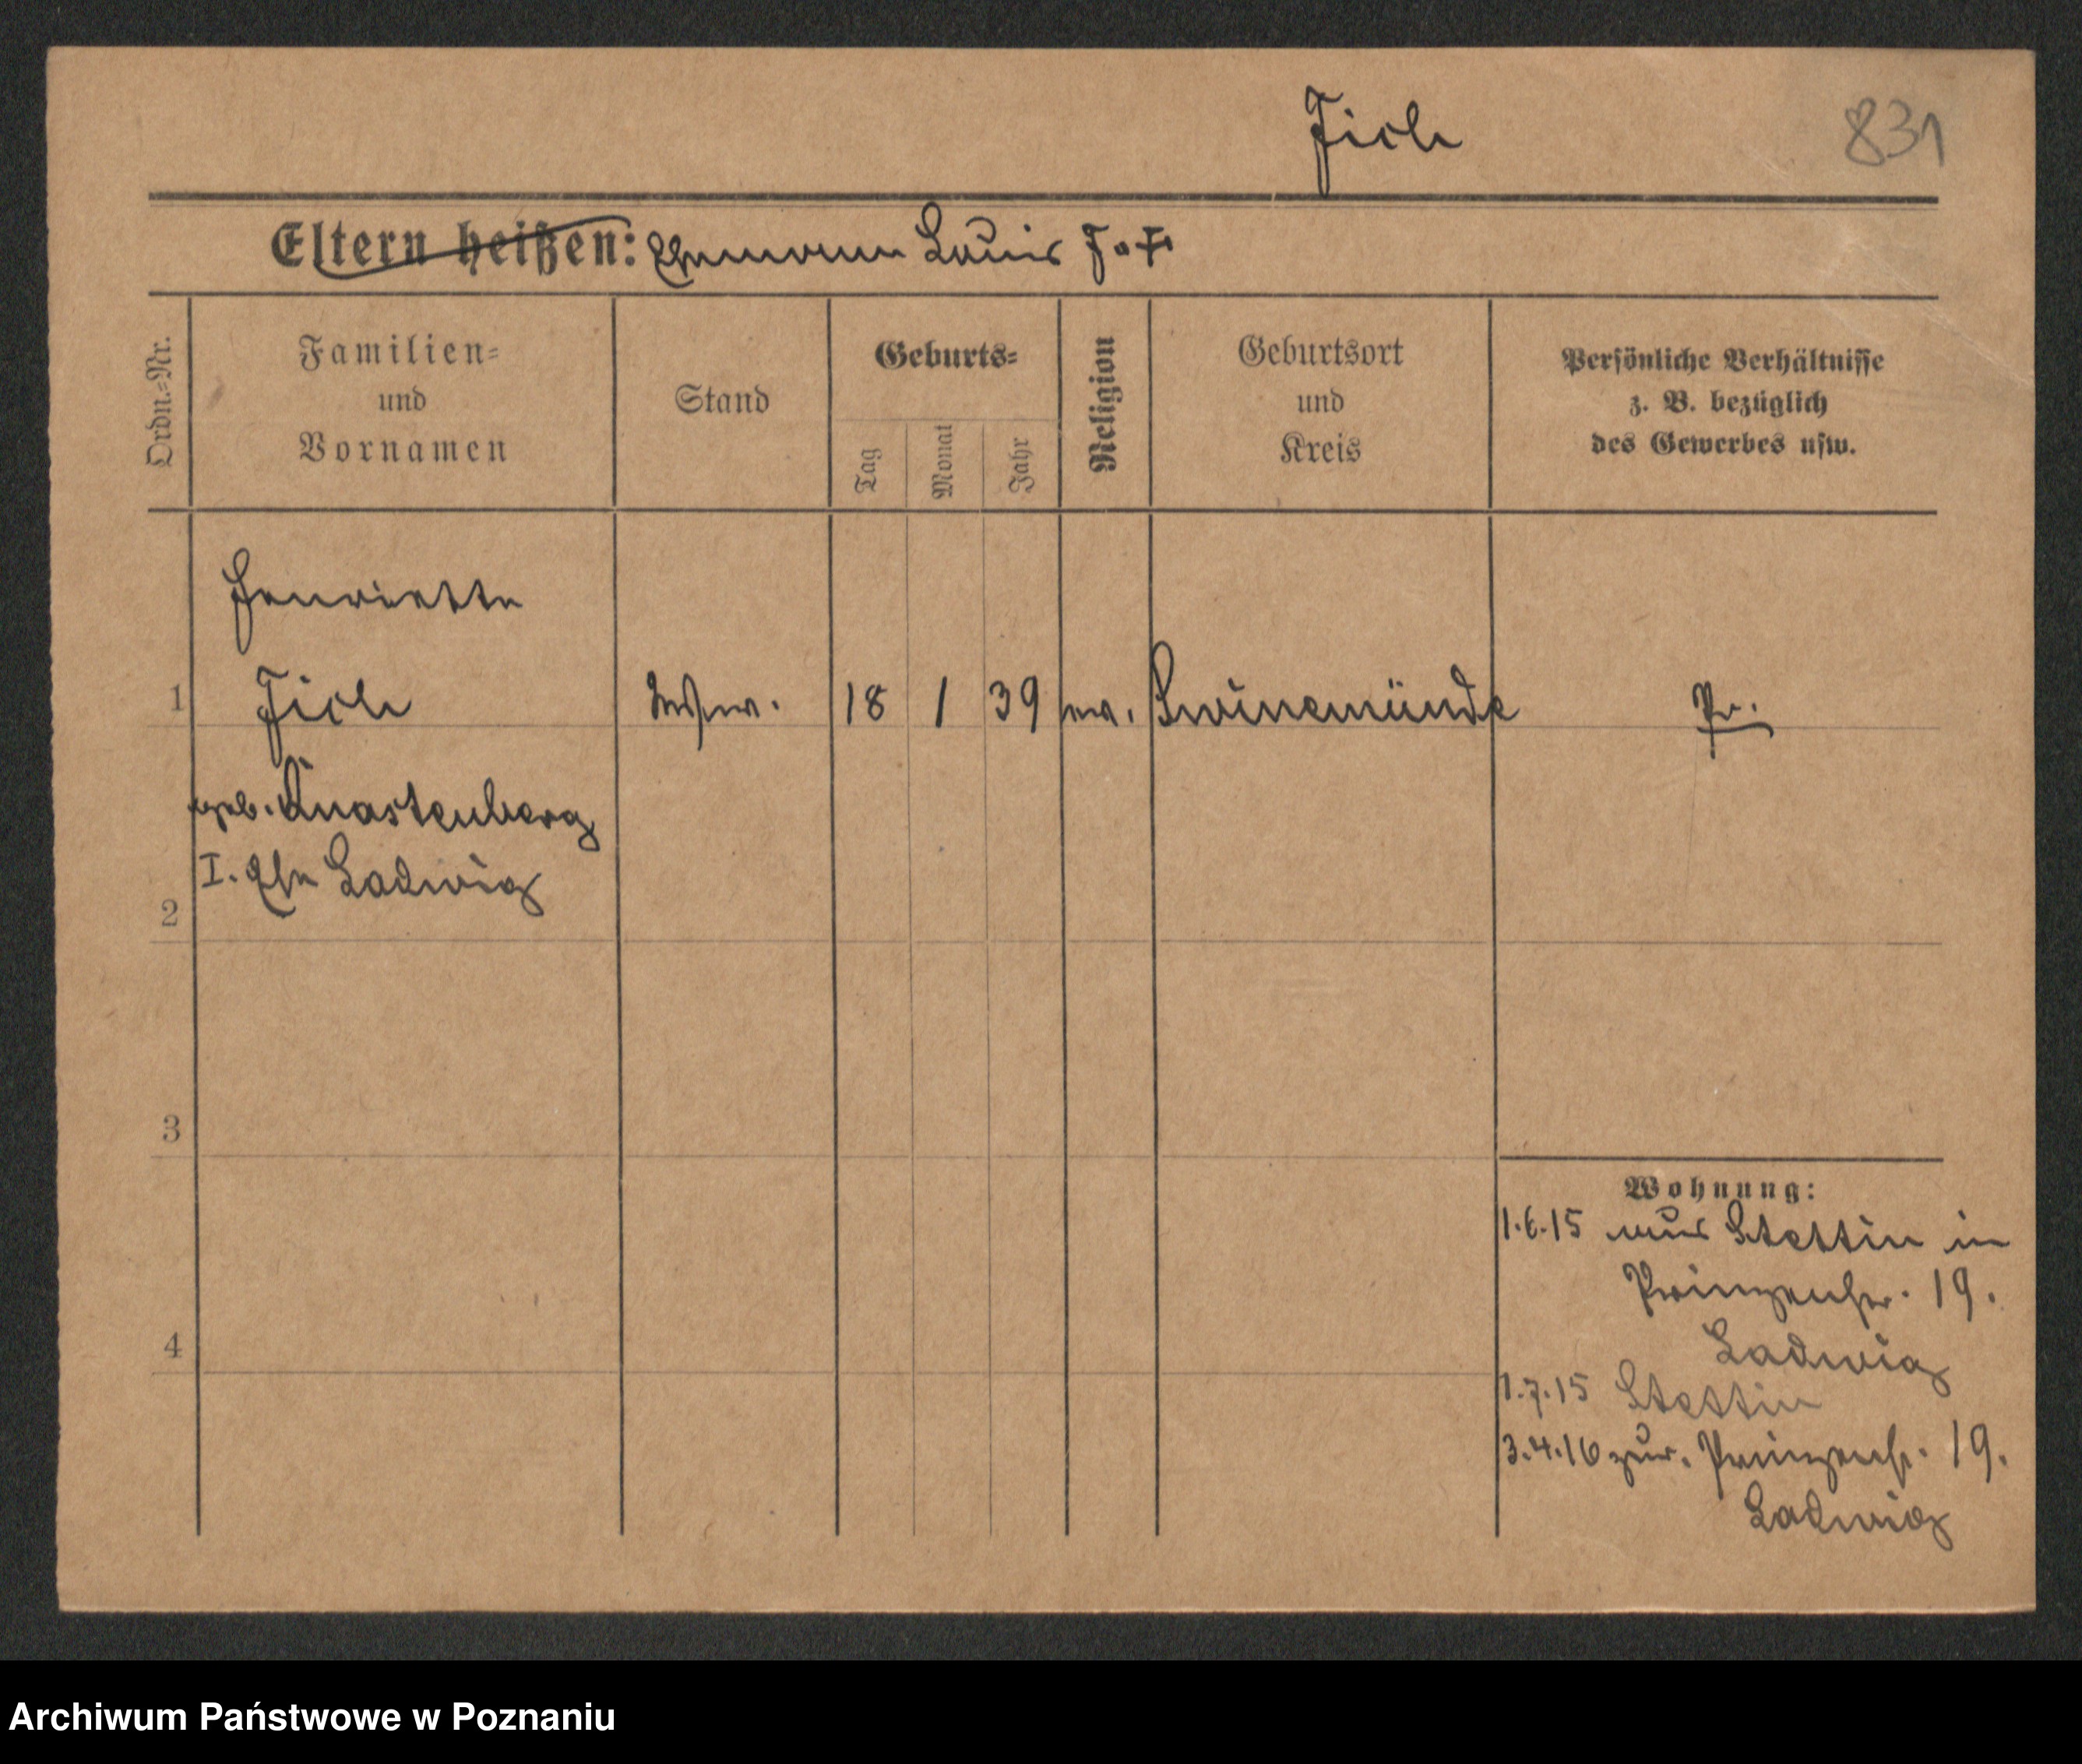 Fich
831
Eltern heißen: Ehemann Louis F. †
Ordn.-Nr.
Familien-
und
Vornamen
Stand
Geburts-
Tag
Monat
Jahr
Religion
Geburtsort
und
Kreis
Persönliche Verhältnisse
z. B. bezüglich
des Gewerbes usw.
Henriette
1 Fich 18 1 39 Swinemünde Pr.
geb. Knastenberg
I. Ehe Ladwig
2
3
4
Wohnung:
1.6.15 aus Stettin in
Prinzenstr. 19.
Ladwig
1.7.15 Stettin
3.4.16 zur. Prinzenstr. 19.
Ladwig
Archiwum Państwowe w Poznaniu